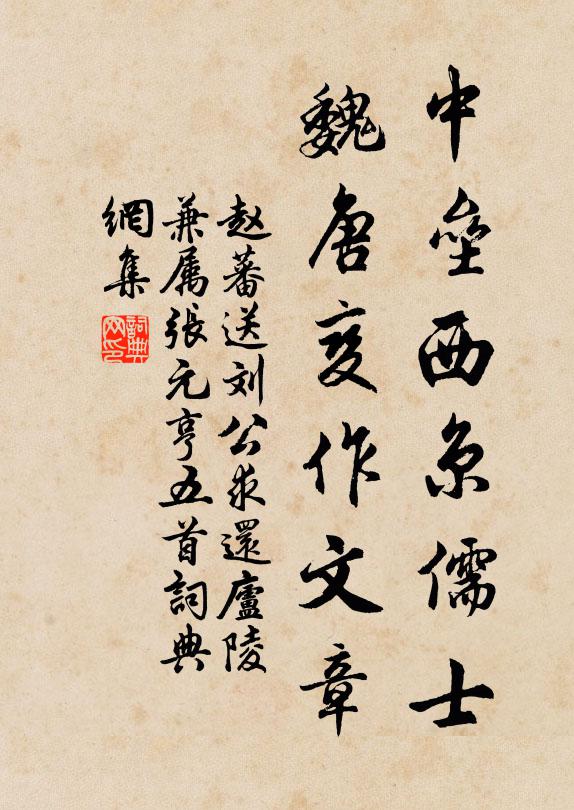 中垒西京儒士
魏唐变作文章
赵蕃送刘公求還廬陵
兼属張元亨五首詞典
網集
詞典
网印